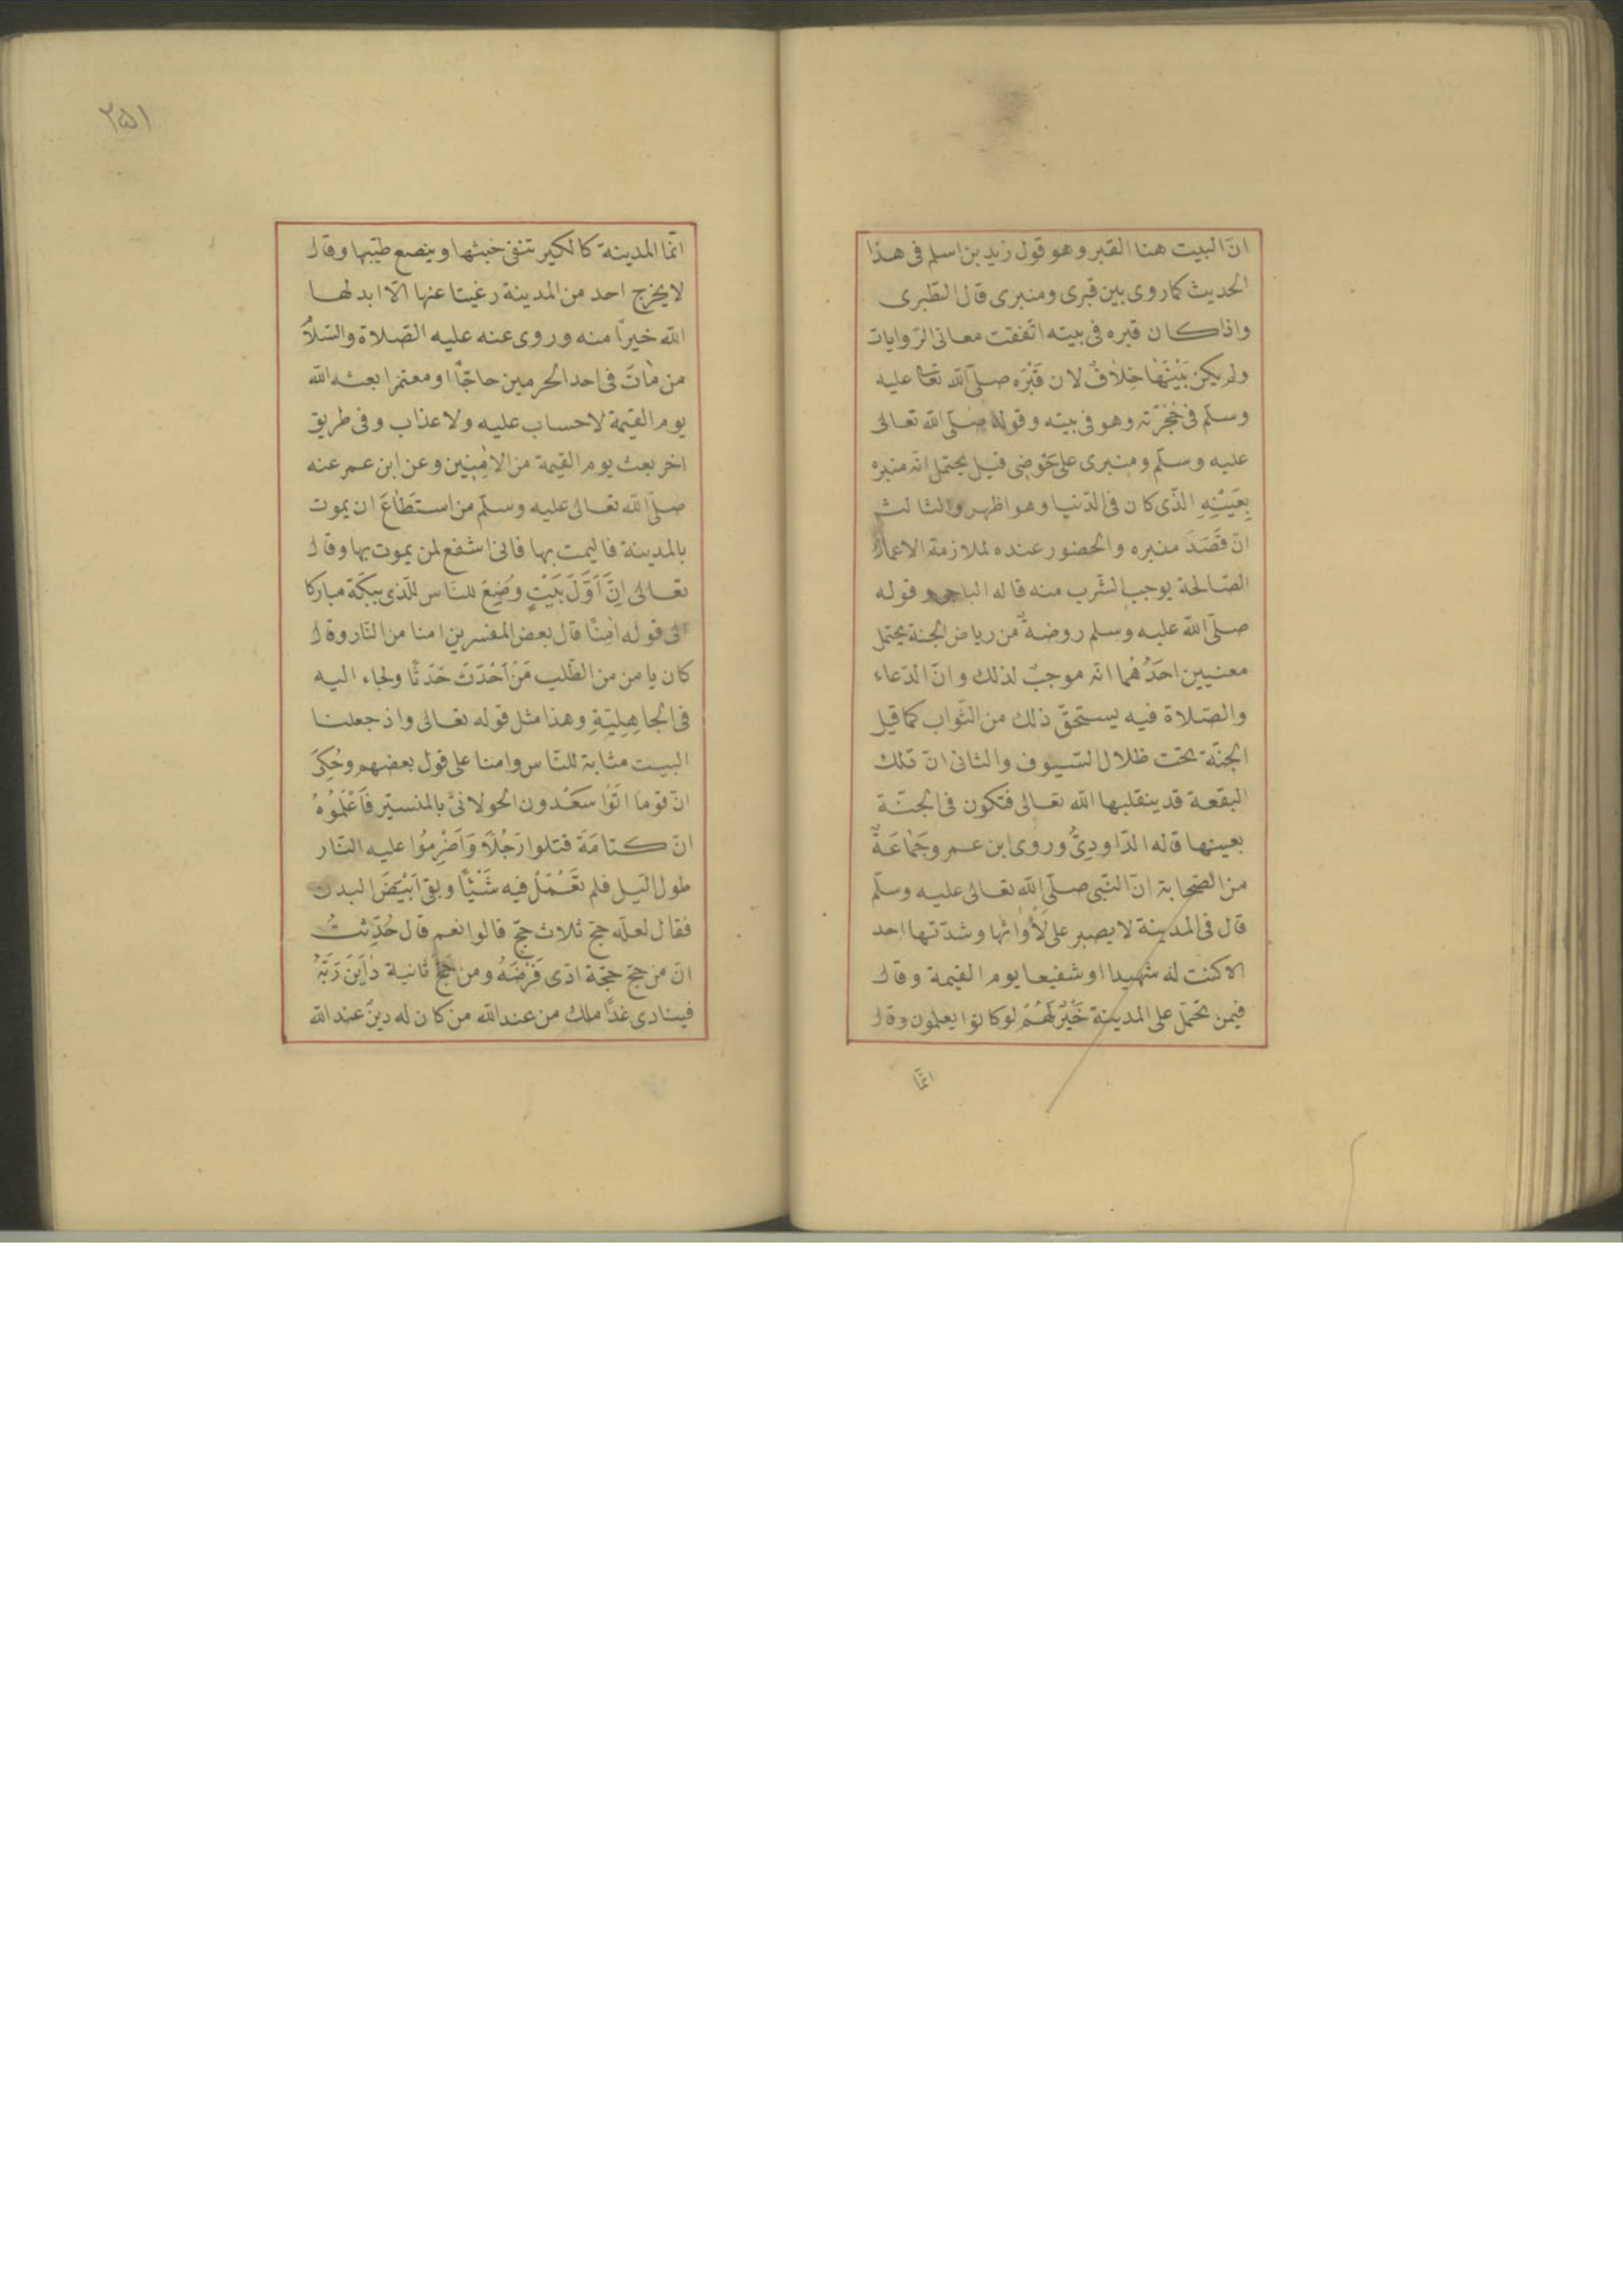 انّ البيت هنا القبر وهو قول زيد بن اسلم فى هذا
الحديث كما روى بين قبرى ومنبرى قال الطّبرى
واذا كان قبره فى بيته اتّفقت معانى الرّوايات
ولم يكن بَيْنَهَا خِلَافٌ لان قَبْرَه صلّى الله تعا عليه
وسلّم فى حُجْرَتِه وهو فى بيته وقوله صلّى الله تعالى
عليه وسلّم ومنبرى على حَوضِى قيل يحتمل انّه منبره
بِعَيْنِهِ الذّى كان فى الدّنيا وهو اظهر والثالث
انّ قَصَدَ منبره والحضور عنده لملازمة الاعمال
الصّالحة يوجب الشّرب منه قاله الباجى وقوله
صلّى الله عليه وسلم روضةٌ من رياض الجنة يحتمل
معنيين احَدُهُما انّه موجبٌ لذلك وانّ الدّعاء
والصّلاة فيه يستحقّ ذلك من الثّواب كما قيل
الجنّة تحت ظلال السّيوف والثانى انّ تلك
البقعة قد ينقلبها الله تعالى فتكون فى الجنّة
بعينها قاله الدّاودِىُّ وروى ابن عمر وجَمَاعَةٌ
من الصّحابة انّ النّبى صلّى الله تعالى عليه وسلّم
قال فى المدينة لا يصبر على لَأْوَائها وشدّتها احد
الا كنت له شهيدا او شفيعا يوم القيمة وقال
فيمن تحَمّل على المدينة خَيْرٌ لَهُمْ لو كانوا يعلمون وقال
انّما
٢٥١
انّما المدينة كالكير تنفى خبثها وينصع طيّبها وقال
لا يخرج احد من المدينة رغبتا عنها الّا ابدلها
الله خيراً منه وروى عنه عليه الصّلاة والسّلاُ
من مَاتَ فى احد الحرمين حاجًّا او معتمرا بعثه الله
يوم القيمة لا حساب عليه ولا عذاب وفى طريق
اخر بعث يوم القيمة من الامِنِين وعن ابن عمر عنه
صلّى الله تعالى عليه وسلّم من استَطَاعَ ان يموت
بالمدينة فاليمت بها فانى اشفع لمن يموت بها وقال
تعالى اِنَّ اَوَّلَ بَيْتٍ وُضِعَ للنّاس للّذى ببكّة مباركا
الى قوله اٰمِنًا قال بعض المفسرين امنا من النّار وقال
كان يامن من الطّلب مَنْ اَحْدَثَ حَدَثًا ولجاء اليه
فى الجاهِلِيّةِ وهذا مثل قوله تعالى واذ جعلنا
البيت مثابة للنّاس وامنا على قول بعضهم وحُكِىَ
انّ قوما اتَوْا سَعْدون الخولانىَّ بالمنستير فَاَعْلَمُوْهُ
انّ كتامَةَ قتلوا رَجُلًا وَاَضْرِمُوا عليه النّار
طول الليل فلم تَعْمَلْ فيه شَيْئًا وبقى اَبْيَضَ البدن
فقال لعلّه حجّ ثلاث حجج قالوا نعم قال حُدِّثتُ
انّ من حجّ حجّة ادّى فَرْضَهُ ومن حجّ ثانية دَايَنَ رَبَّهُ
فينادى غدًا ملك من عند الله من كان له دينٌ عند الله